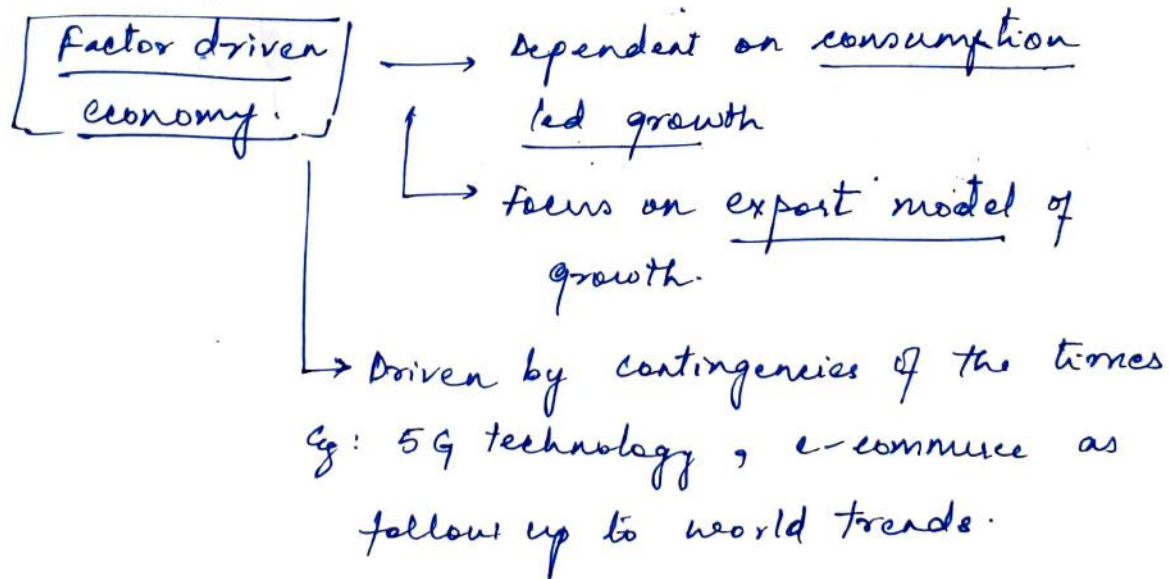 Factor driven
economy.
Dependent on consumption
led growth
Focus on export model of
growth.
Driven by contingencies of the times
Eg: 5G technology, e-commerce as
follow up to world trends.